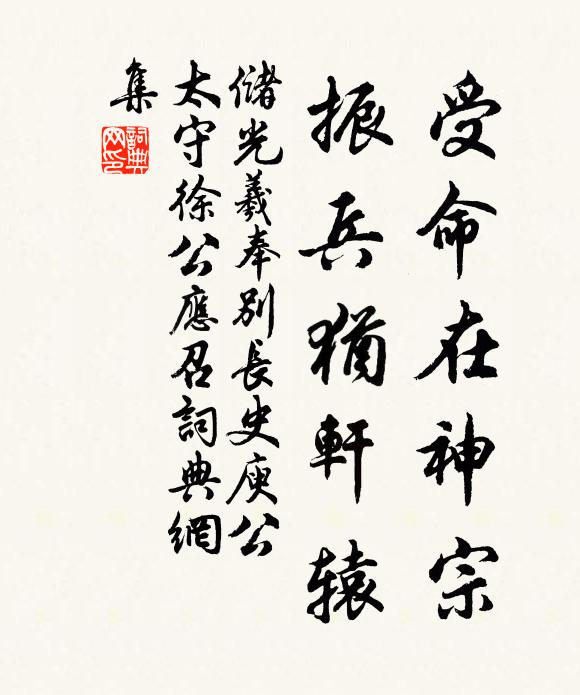 受命在神宗
振兵猶軒辕
儲光羲奉別長史庾公
太守徐公應召詞典網
集
詞典网印